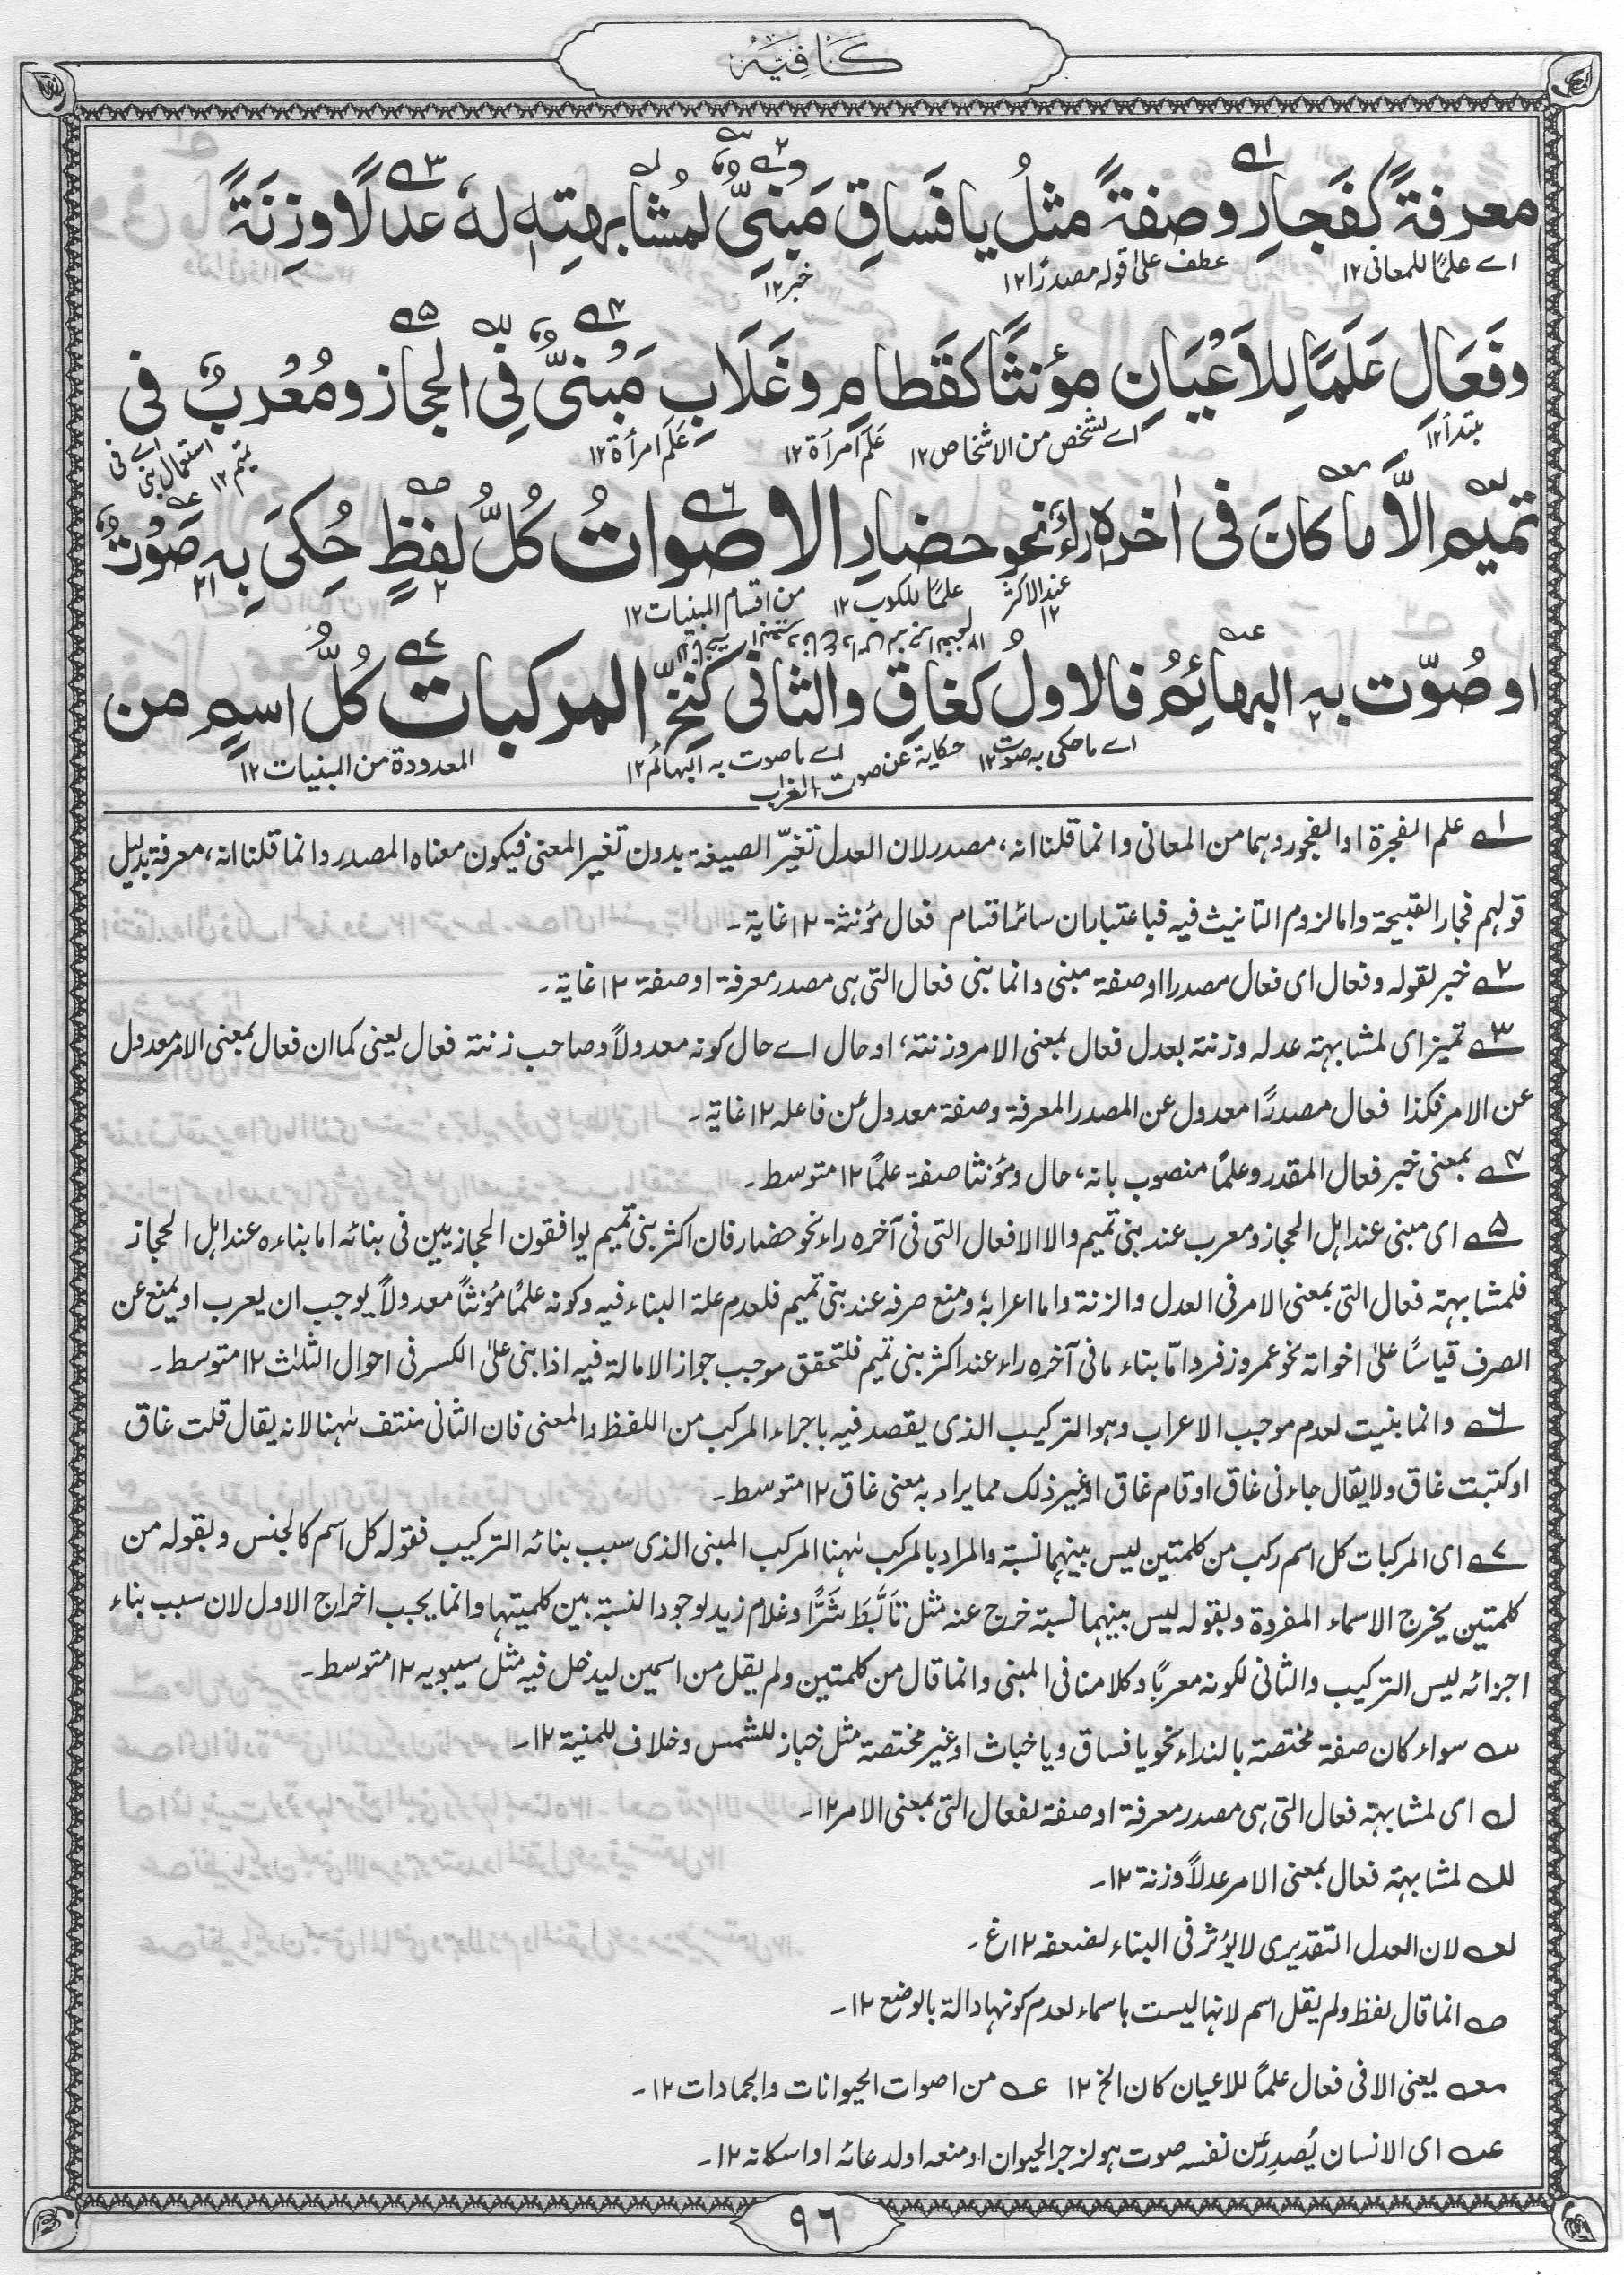 كَافِيَه
معرفةً كفَجارِ وصفةً مثلُ يا فَساقِ مَبنيٌّ لمُشابهتِهٖ لهٗ عدلًا وزِنَةً
اے علمًا للمعانی ١٢ عطف علیٰ قولہ مصدرًا ١٢ خبر ١٢
وفَعَالِ عَلَمًا لِلاَعْيَانِ مؤنثًا كقَطامِ وغَلَابِ مَبْنيٌّ فِي الحجاز ومُعْرَبٌ فی
مبتدأ ١٢ اے لشخص من الاشخاص ١٢ عَلَم امرأة ١٢ عَلَم امرأة ١٢
اے فی استعمال بنی تمیم ١٢
تميم الَّا ما كانَ فی اٰخرہٖ راءٌ نحو حضارِ الاصواتُ كُلُّ لفظٍ حُكِىَ بِهٖ صَوْتٌ
عند الاكثر ١٢ علمًا للكوب ١٢ من اقسام المبنيات ١٢
او صُوِّت بہ البهائمُ فالاولُ كغاقِ والثانی كنخِّ المركبات كُلُّ اسمٍ من
اے ما حکی بہ صوت ١٢ حکایة عن صوت الغراب اے ما صوت بہ البہائم ١٢ المعدودة من المبنيات ١٢
١ے علم الفجرة او الفجور وہما من المعانی وانما قلنا انہ، مصدر لان العدل تغیّر الصیغة بدون تغیر المعنی فیکون معناہ المصدر وانما قلنا انہ، معرفة بدلیل
قولہم فجار القبیحة واما لزوم التانیث فیہ فباعتبار ان سائر اقسام فعال مؤنثة ١٢ غایة۔
٢ے خبر لقولہ وفعال ای فعال مصدرا او صفة مبنی وانما بنی فعال التی ہی مصدر معرفة او صفة ١٢ غایة۔
٣ے تمیز ای لمشابہتہ عدلہ وزنتہ بعدل فعال بمعنی الامر وزنتہ، او حال اے حال کونہ معدولاً وصاحب زنتہ فعال یعنی کما ان فعال بمعنی الامر معدول
عن الامر فکذا فعال مصدرًا معدول عن المصدر المعرفة وصفة معدول عن فاعلہ ١٢ غایة۔
٤ے بمعنی خبر فعال المقدر وعلمًا منصوب بانہ، حال ومؤنثا صفة علمًا ١٢ متوسط۔
٥ے ای مبنی عند اہل الحجاز ومعرب عند بنی تمیم والا الا فعال التی فی آخرہ راء نحو حضار فان اکثر بنی تمیم یوافقون الحجازیین فی بنائہ اما بناءہ عند اہل الحجاز
فلمشابہتہ فعال التی بمعنی الامر فی العدل والزنة واما اعرابہٗ ومنع صرفہ عند بنی تمیم فلعدم علة البناء فیہ وکونہ علمًا مؤنثًا معدولاً یوجب ان یعرب او یمنع عن
الصرف قیاسًا علیٰ اخواتہ نحو عمر وزفر وامّا بناء ما فی آخرہ راء عند اکثر بنی تمیم فلتحقق موجب جواز الامالة فیہ اذا بنی علیٰ الکسر فی احوال الثلث ١٢ متوسط۔
٦ے وانما بنیت لعدم موجب الاعراب وہو الترکیب الذی یقصد فیہ باجزاء المرکب من اللفظ والمعنی فان الثانی منتف ہٰہنا لانہ یقال قلت غاق
او کتبت غاق ولا یقال جاءنی غاق او قام غاق او غیر ذلک مما یراد بہ معنی غاق ١٢ متوسط۔
٧ے ای المرکبات کل اسم رکب من کلمتین لیس بینہما نسبة والمراد بالمرکب ہٰہنا المرکب المبنی الذی سبب بنائہ الترکیب فقولہ کل اسم کالجنس وبقولہ من
کلمتین یخرج الاسماء المفردة وبقولہ لیس بینہما نسبة خرج عنہ مثل تَأَبَّطَ شَرًّا وغلام زید لوجود النسبة بین کلمیتہما وانما یجب اخراج الاول لان سبب بناء
اجزائہ لیس الترکیب والثانی لکونہ معربًا وکلامنا فی المبنی وانما قال من کلمتین ولم یقل من اسمین لیدخل فیہ مثل سیبویہ ١٢ متوسط۔
سواء کان صفة مختصة بالنداء نحو یا فساق ویا خباث او غیر مختصة مثل خباز للشمس وخلاف للمنیة ١٢۔
ل ای لمشابہتہ فعال التی ہی مصدر معرفة او صفة لفعال التی بمعنی الامر ١٢۔
لل لمشابہتہ فعال بمعنی الامر عدلاً وزنة ١٢۔
لعہ لان العدل التقدیری لا یؤثر فی البناء لضعفہ ١٢ غ۔
صہ انما قال لفظ ولم یقل اسم لانہا لیست باسماء لعدم کونہا دالة بالوضع ١٢۔
معہ یعنی الا فی فعال علمًا للاعیان کان الخ ١٢ عہ من اصوات الحیوانات والجمادات ١٢۔
عہ ای الانسان یُصدِر عن نفسہ صوت ہو لزجر الحیوان او منعہ او لدعائہ او اسکاتہ ١٢۔
٩٦